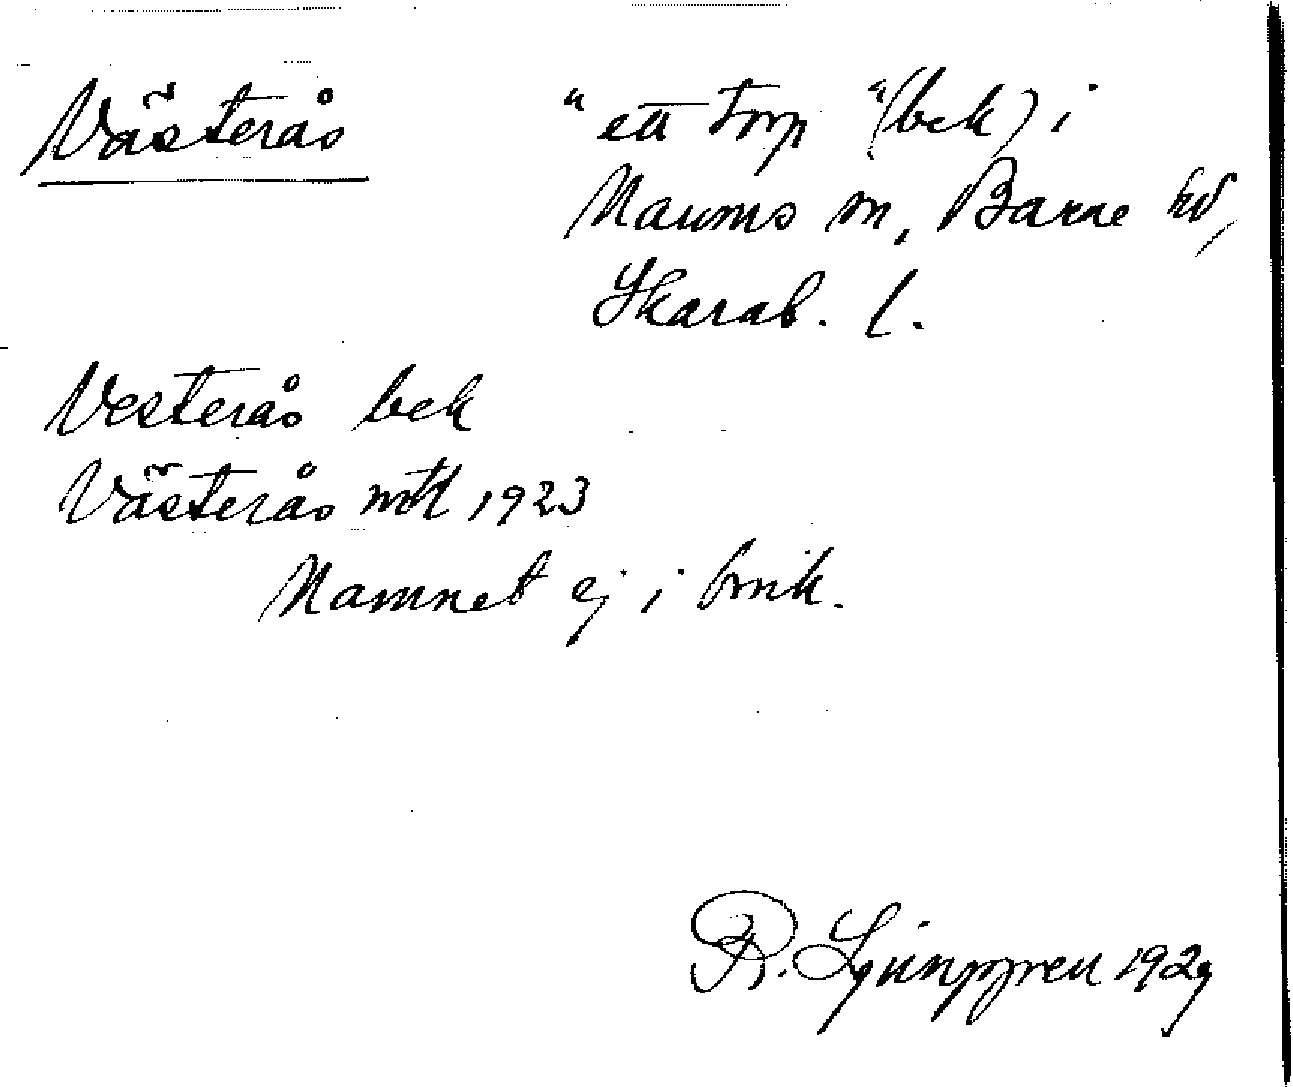 Västerås "ett torp" (bek) i
Naums sn, Barne hd,
Skarab. l.
Vesterås bek
Västerås mtl 1923
Namnet ej i bruk.
R. Ljunggren 1929